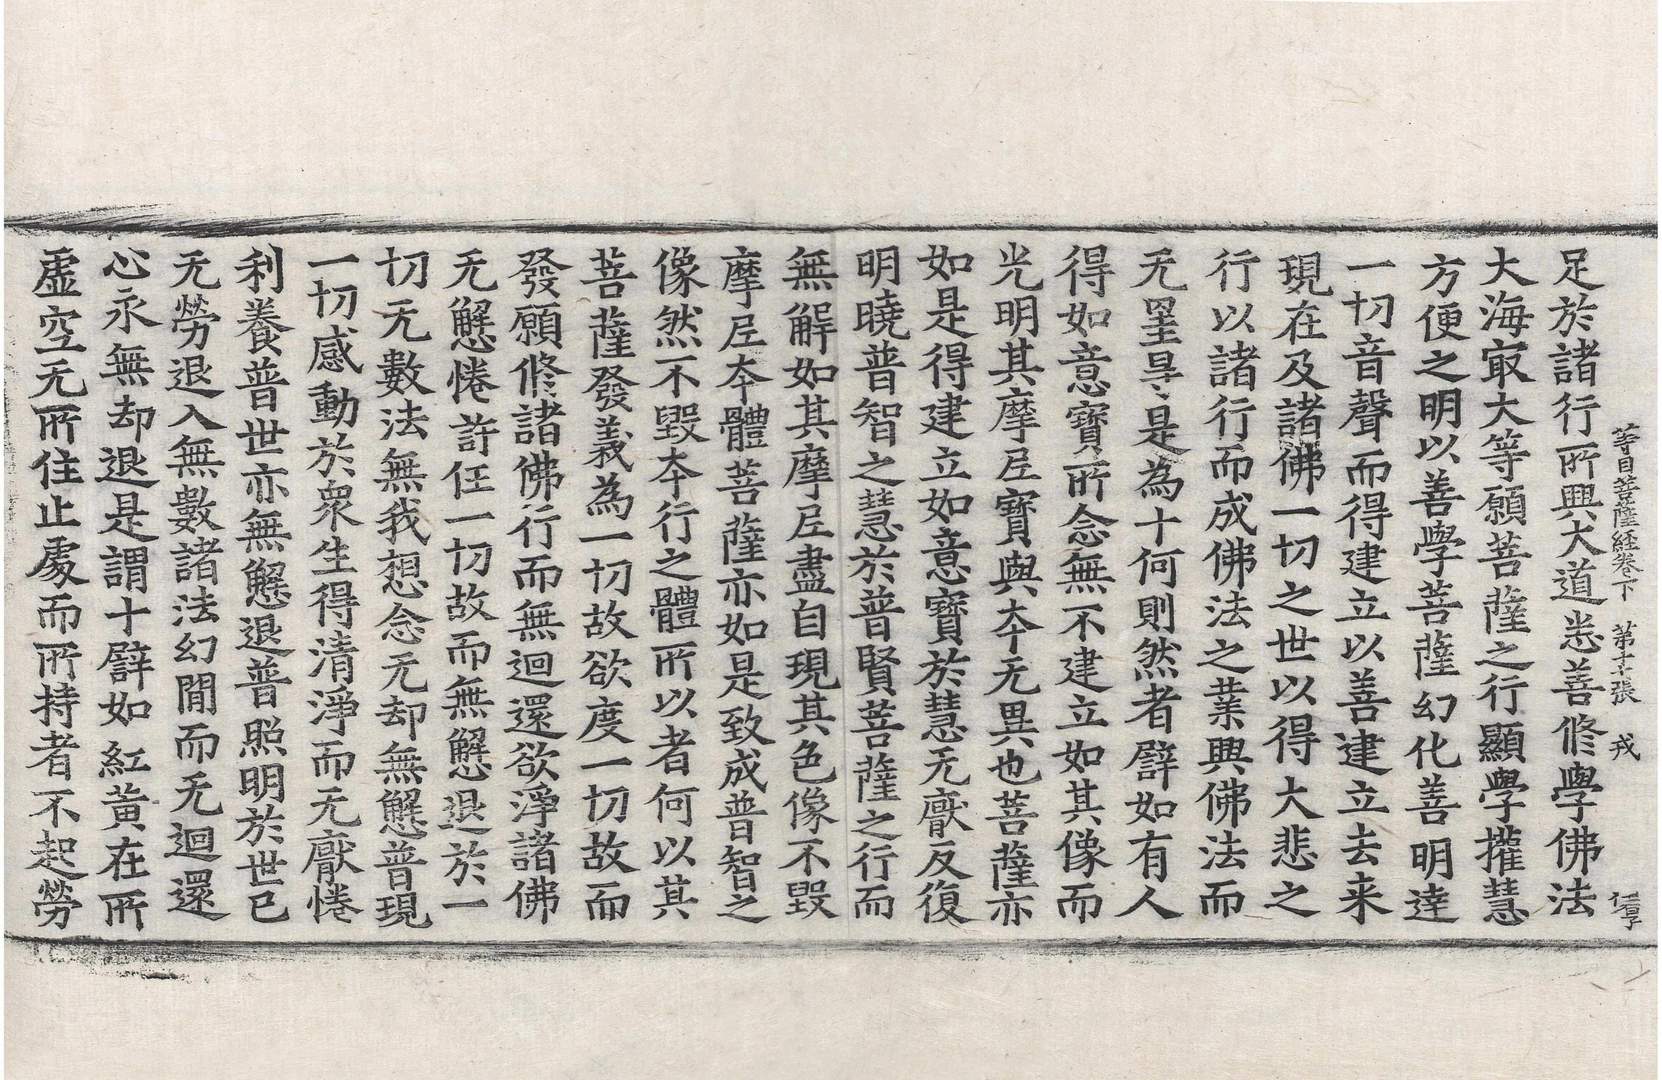 等目菩薩経卷下 第十六張 戎 仁亨
足於諸行所興大道悉善修學佛法
大海㝡大等願菩薩之行顯學權慧
方便之明以善學菩薩幻化善明達
一切音聲而得建立以善建立去来
現在及諸佛一切之世以得大悲之
行以諸行而成佛法之業興佛法而
无罣导是為十何則然者辟如有人
得如意寶所念無不建立如其像而
光明其摩尼寶與本无異也菩薩亦
如是得建立如意寶於慧无厭反復
明曉普智之慧於普賢菩薩之行而
無解如其摩尼盡自現其色像不毀
摩尼本體菩薩亦如是致成普智之
像然不毀本行之體所以者何以其
菩薩發義為一切故欲度一切故而
發願修諸佛行而無迴還欲淨諸佛
无懈惓許任一切故而無懈退於一
切无數法無我想念无却無懈普現
一切感動於衆生得清淨而无厭惓
利養普世亦無懈退普照明於世已
无勞退入無數諸法幻間而无迴還
心永無却退是謂十辟如紅黃在所
虛空无所住止處而所持者不起勞